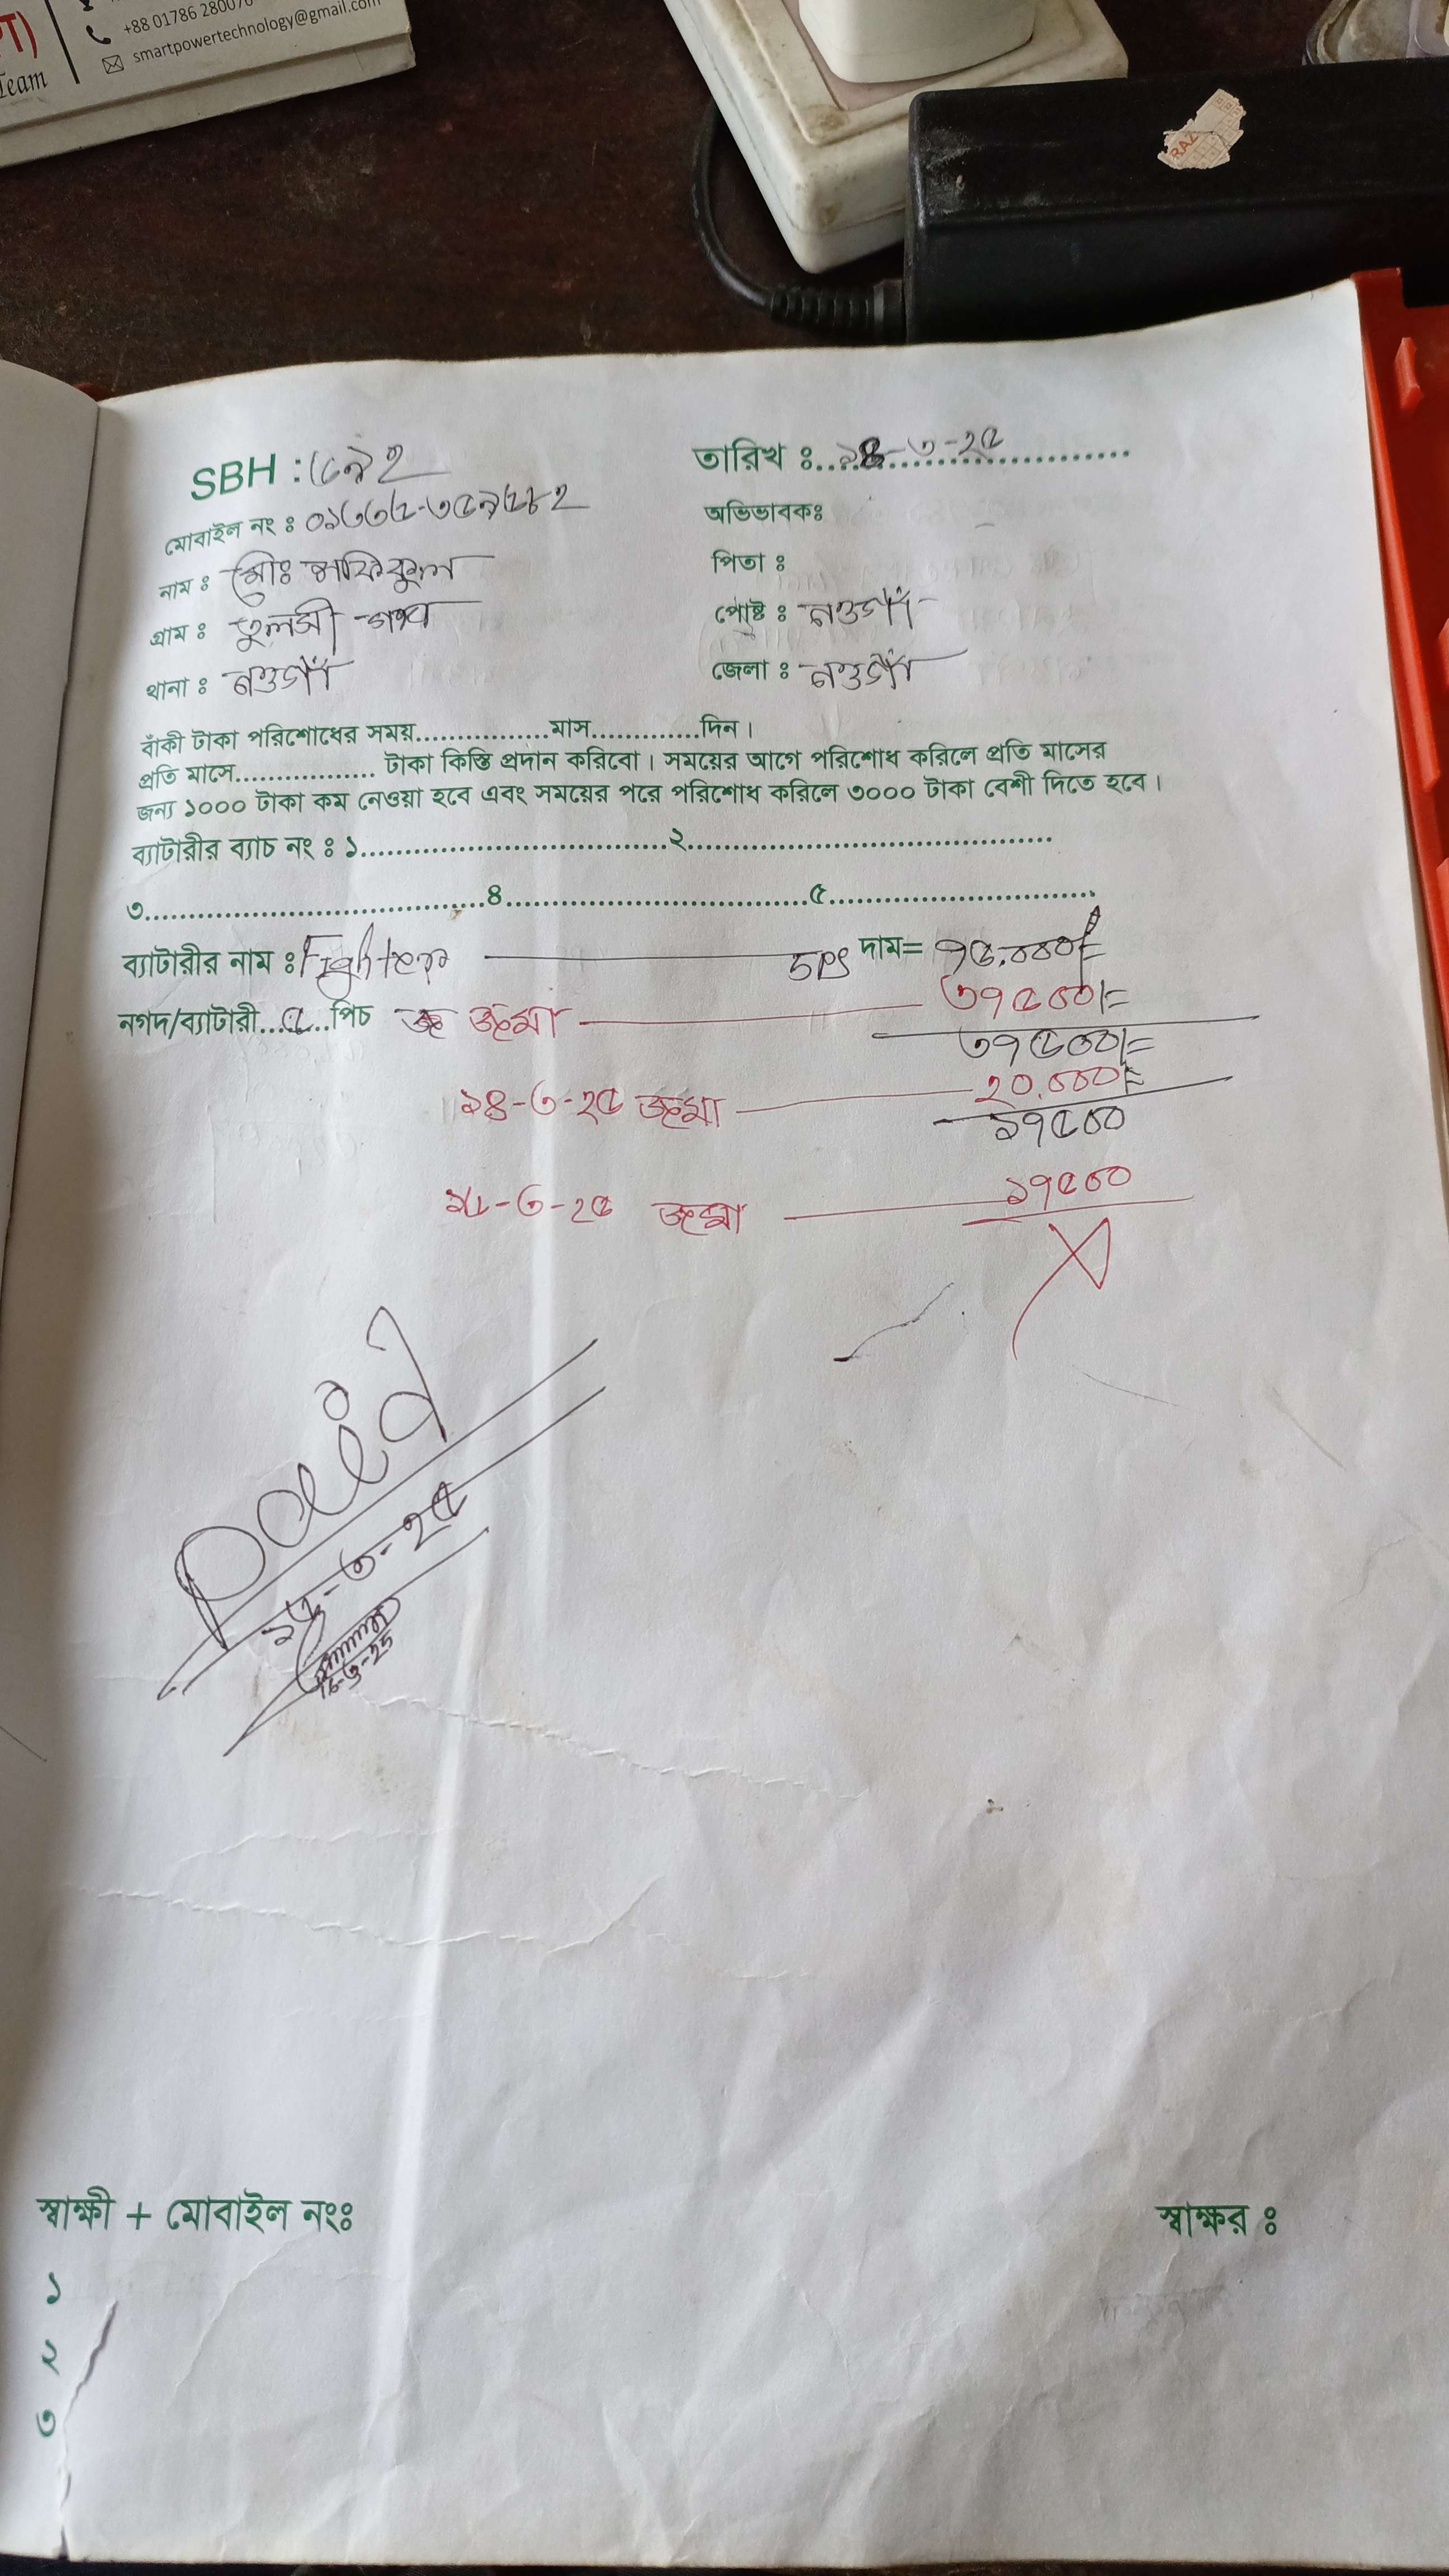 PT)
Team
+88 01786 280070
smartpowertechnology@gmail.com
RAZ
SBH : ৫৯২
তারিখ ঃ ১৪-৩-২৫
মোবাইল নং ঃ
অভিভাবকঃ
নাম ঃ মোঃ শফিকুল
পিতা ঃ
গ্রাম ঃ তুলসী গঙ্গা
পোষ্ট ঃ নওগাঁ
থানা ঃ নওগাঁ
জেলা ঃ নওগাঁ
বাঁকী টাকা পরিশোধের সময়................মাস.............দিন।
প্রতি মাসে................. টাকা কিস্তি প্রদান করিবো। সময়ের আগে পরিশোধ করিলে প্রতি মাসের
জন্য ১০০০ টাকা কম নেওয়া হবে এবং সময়ের পরে পরিশোধ করিলে ৩০০০ টাকা বেশী দিতে হবে।
ব্যাটারীর ব্যাচ নং ঃ ১......................................২...........................................
৩.........................................৪.....................................৫................................
ব্যাটারীর নাম ঃ Fighter 5Ps দাম= ৭৫,০০০/=
নগদ/ব্যাটারী....৫...পিচ জমা ৩৭৫০০/=
৩৭৫০০/=
১৪-৩-২৫ জমা ২০,০০০/=
১৭৫০০
১৫-৩-২৫ জমা ১৭৫০০
Paid
-৩-২৫
স্বাক্ষী + মোবাইল নংঃ
স্বাক্ষর ঃ
১
২
৩